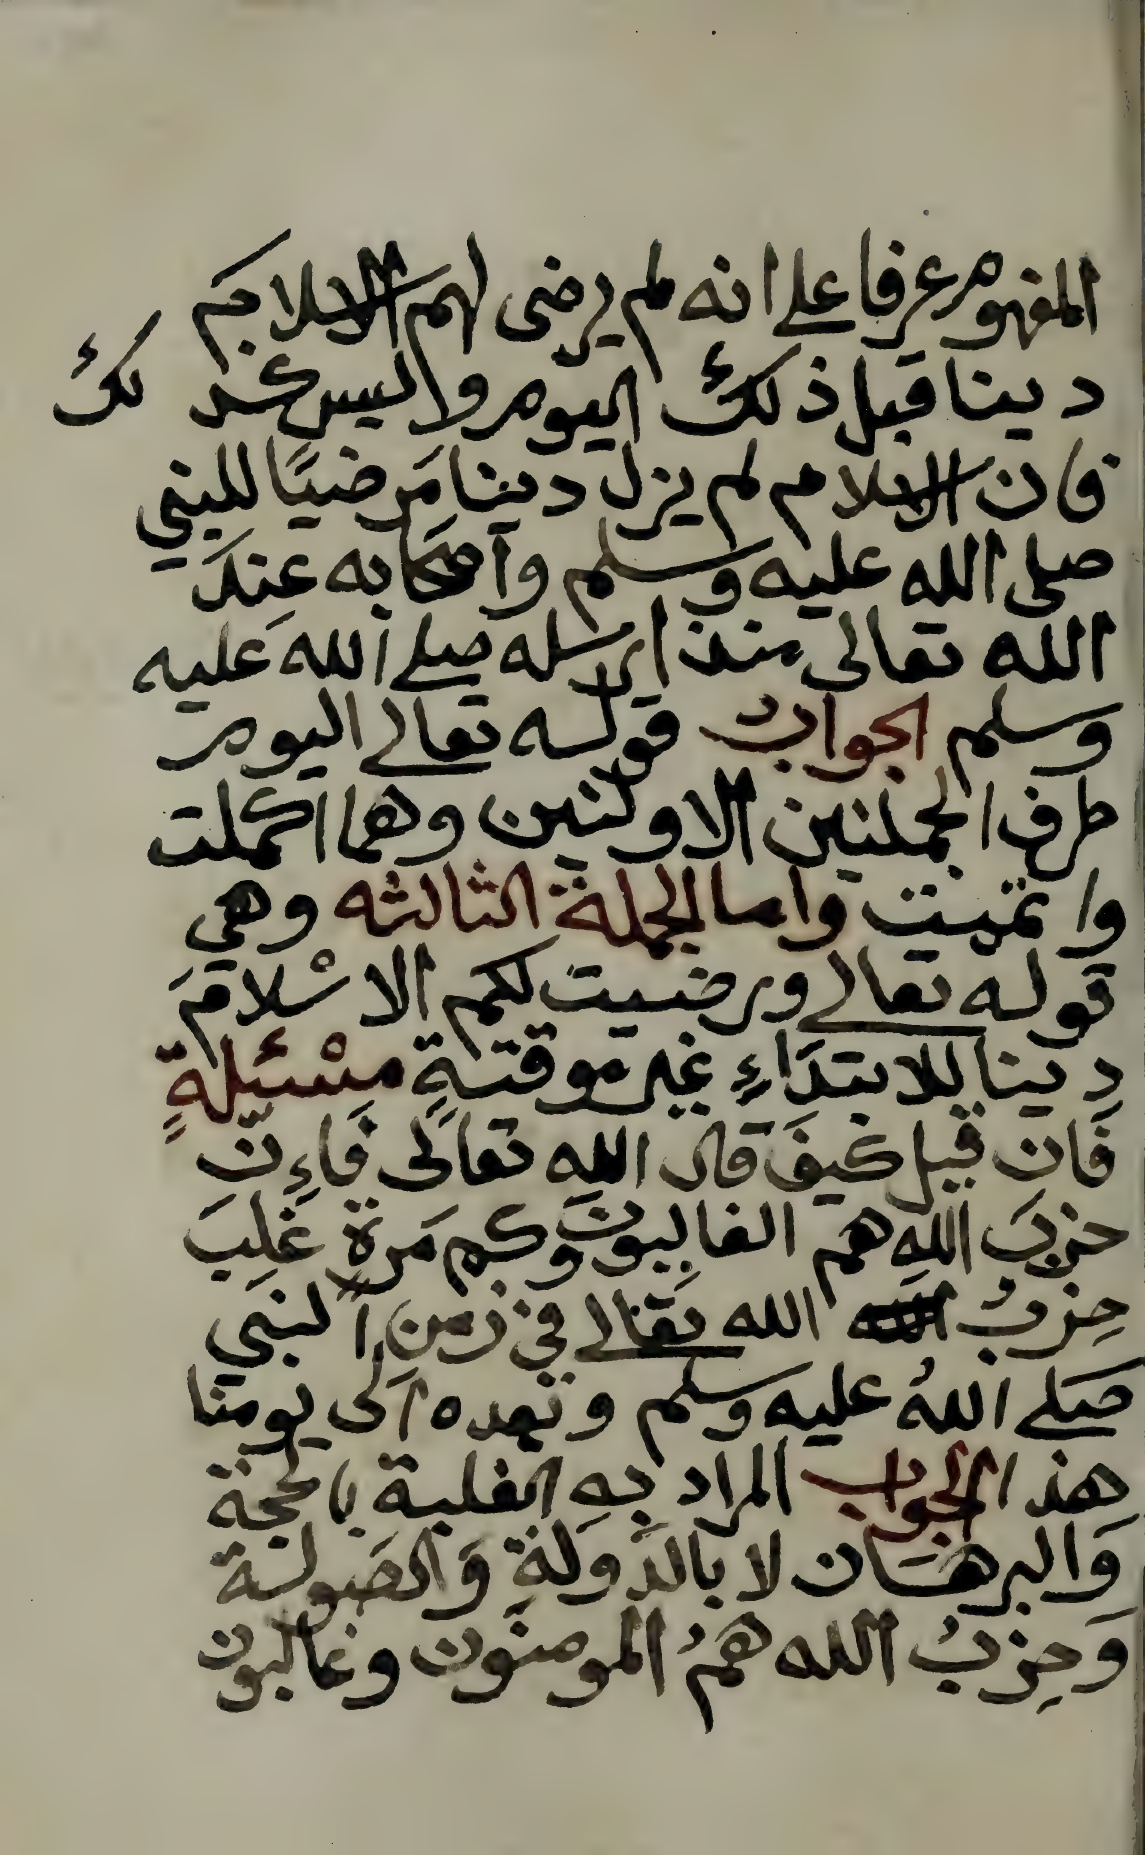 المفهوم عرفا على انه لم يرضى لهم الاسلام
دينا قبل ذلك اليوم وليس كذلك
فان الاسلام لم يزل دينا مَرضيًا للنبي
صلى الله عليه وسلم وأصحابه عِندَ
الله تعالى منذ ارسله صلى الله عليه
وسلم الجواب قوله تعالى اليوم
ظرف الجملتين الاولتين وهما اكملت
واتممت واما الجملة الثالثه وهي
قوله تعالى ورضيت لكم الاسْلامَ
دينا للابتدَاءِ غير موقتةٍ مسْئلةٍ
فَان قيل كيفَ قال الله تعَالى فَاِنّ
حزبَ اللهِ هم الغالبونَ وكم مَرة غُلِبَ
حِزبُ الله تعَالى في زمن النبي
صَلى اللهُ عليه وسلم وبعده الَى يومنا
هذا الجواب المراد بهِ الغلبة بالحجة
وَالبرهَان لا بالدَولَةِ وَالصَولة
وَحِزبُ الله همُ المومنون وغالبون